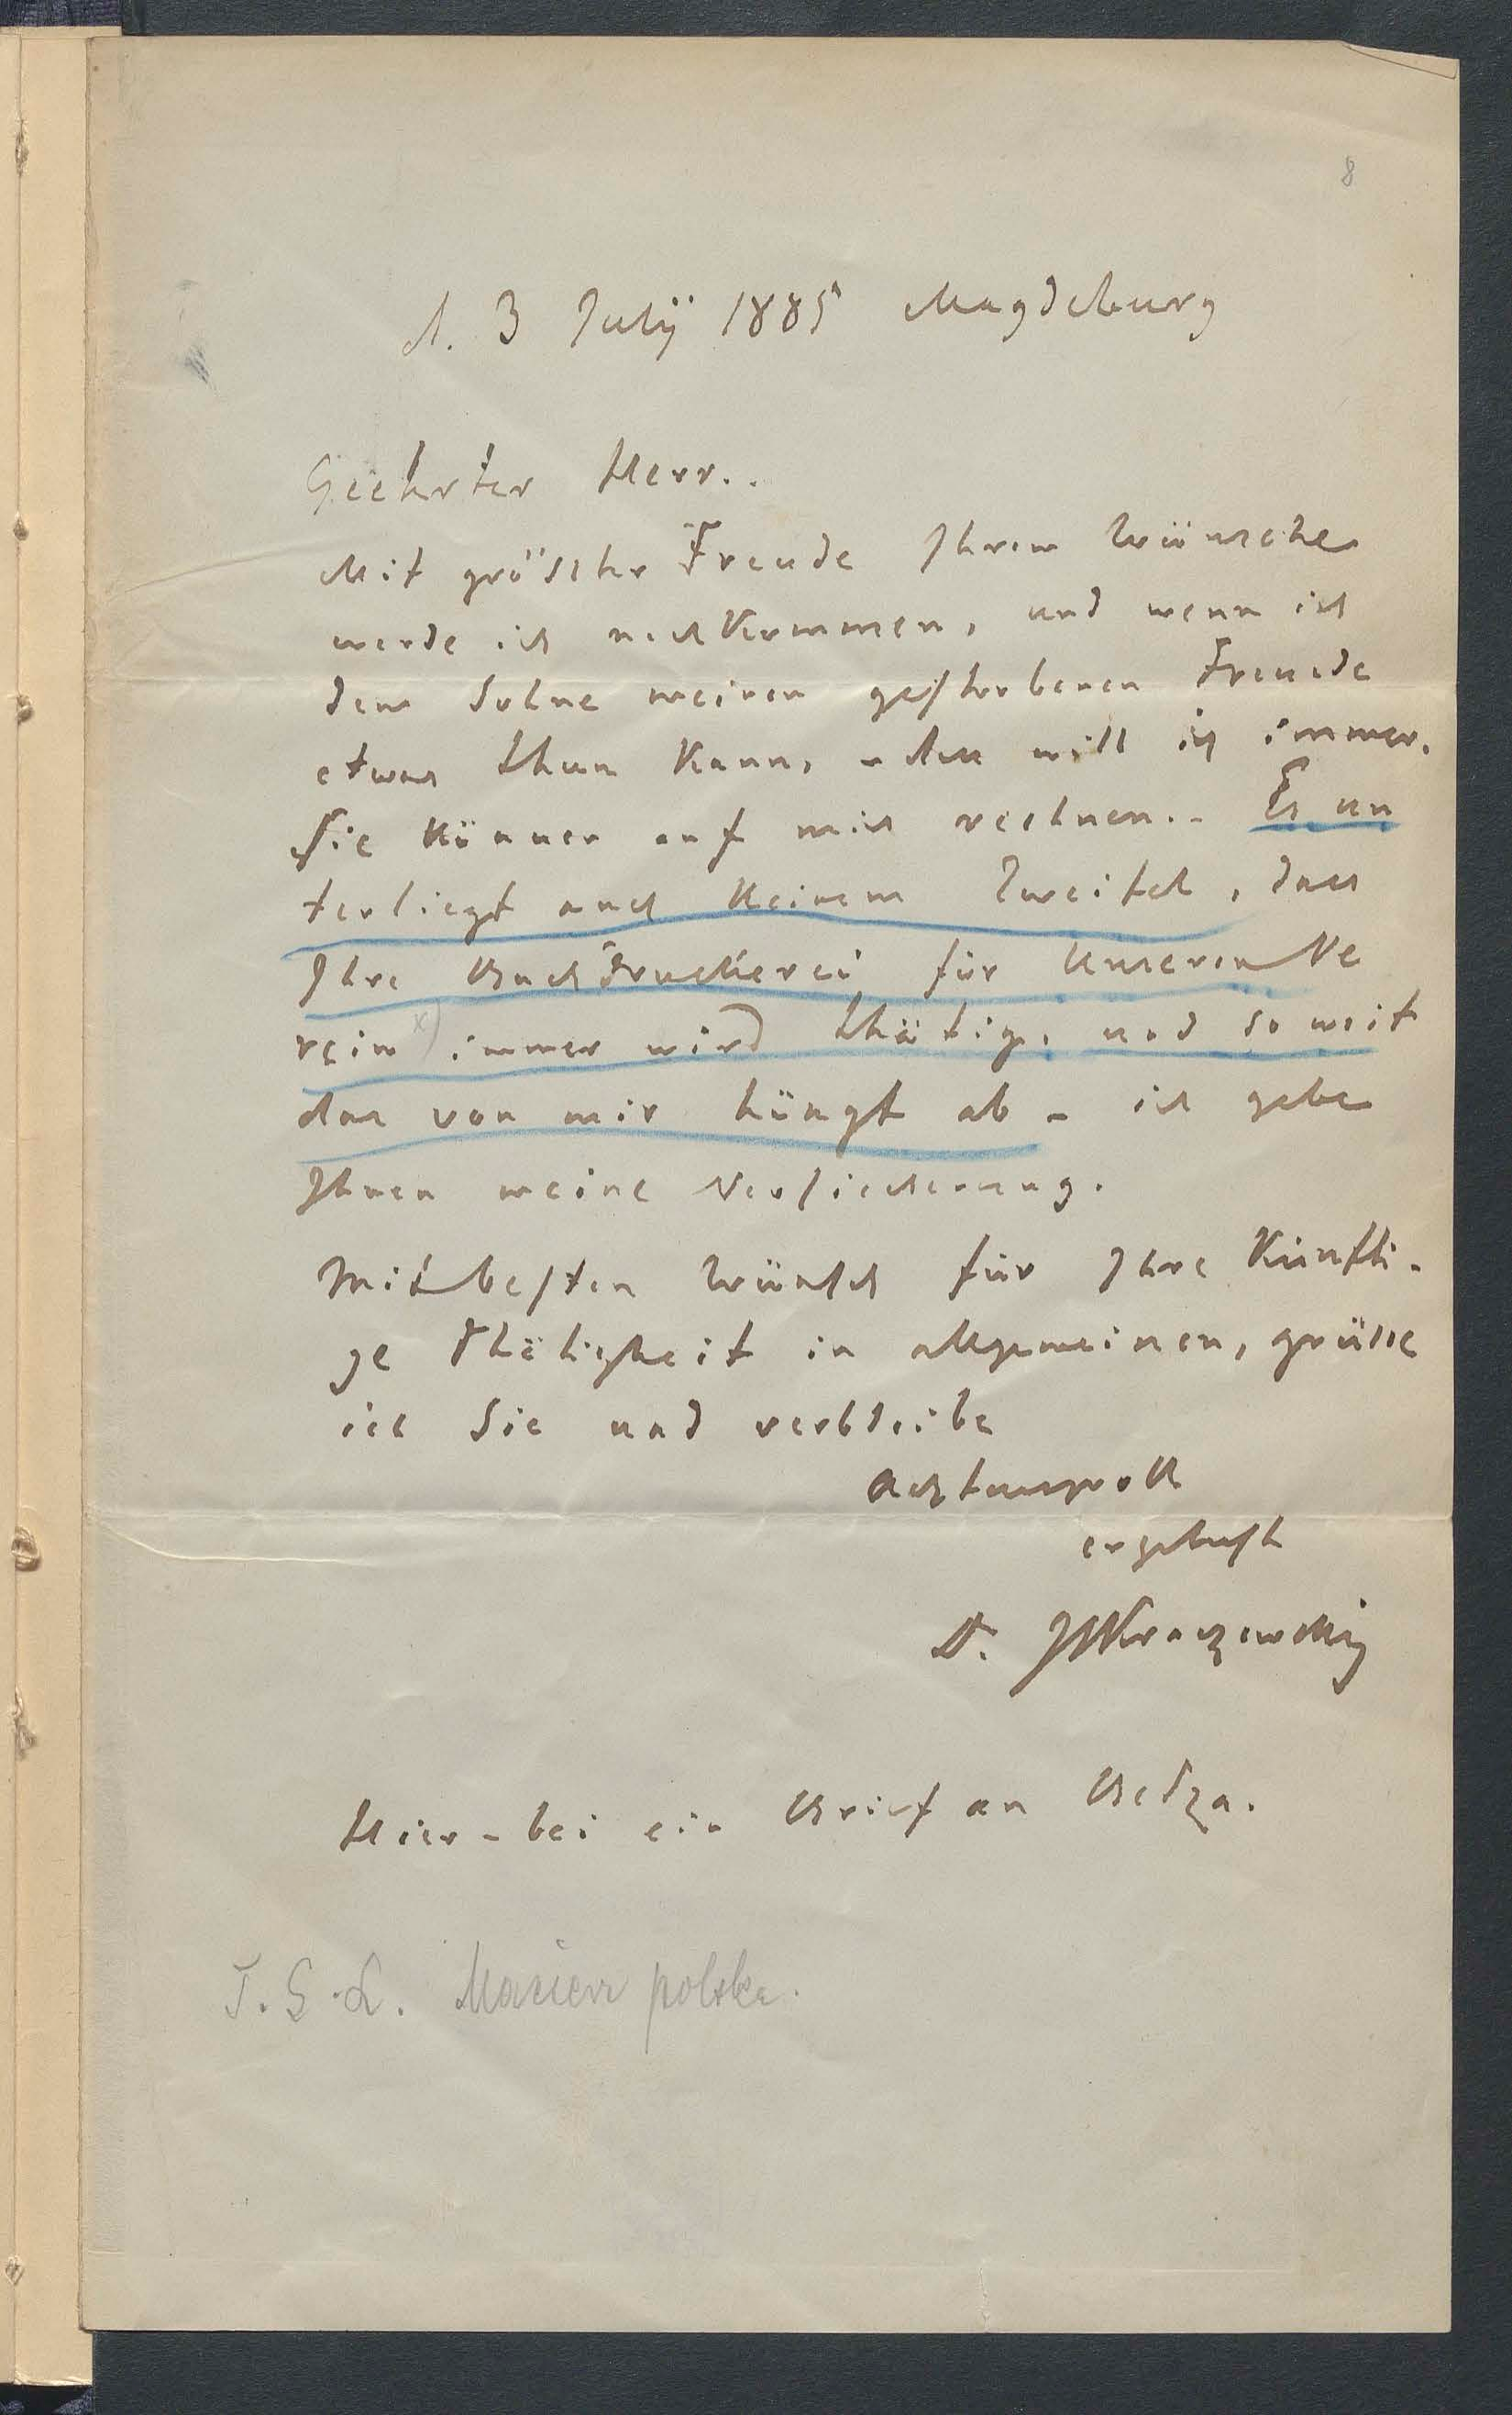 8
d. 3 Julÿ 1885 Magdeburg
Geehrter Herr..
Mit gröster Freude Ihrem Wünsche
werde ich nachkommen, und wenn ich
dem Sohne meinen gestorbenen Freude
etwas thun kann, - das will ich immer.
Sie können auf mich rechnen.. Es un
terliegt auch keinem Zweifel, dass
Ihre Buchdruckerei für Unseren Ve
rein x) immer wird thätig, und so weit
das von mir hängt ab - ich gebe
Ihnen meine Versicherung.
Mit besten Wünsch für Ihre Künfti-
ge Thätigkeit in allgemeinen, grüsse
ich Sie und verbleibe
Achtungsvoll
ergebenst
Dr. JIKraszewskij
Hier-bei ein Brief an Bełza.
T. S. L. Macierz polska.